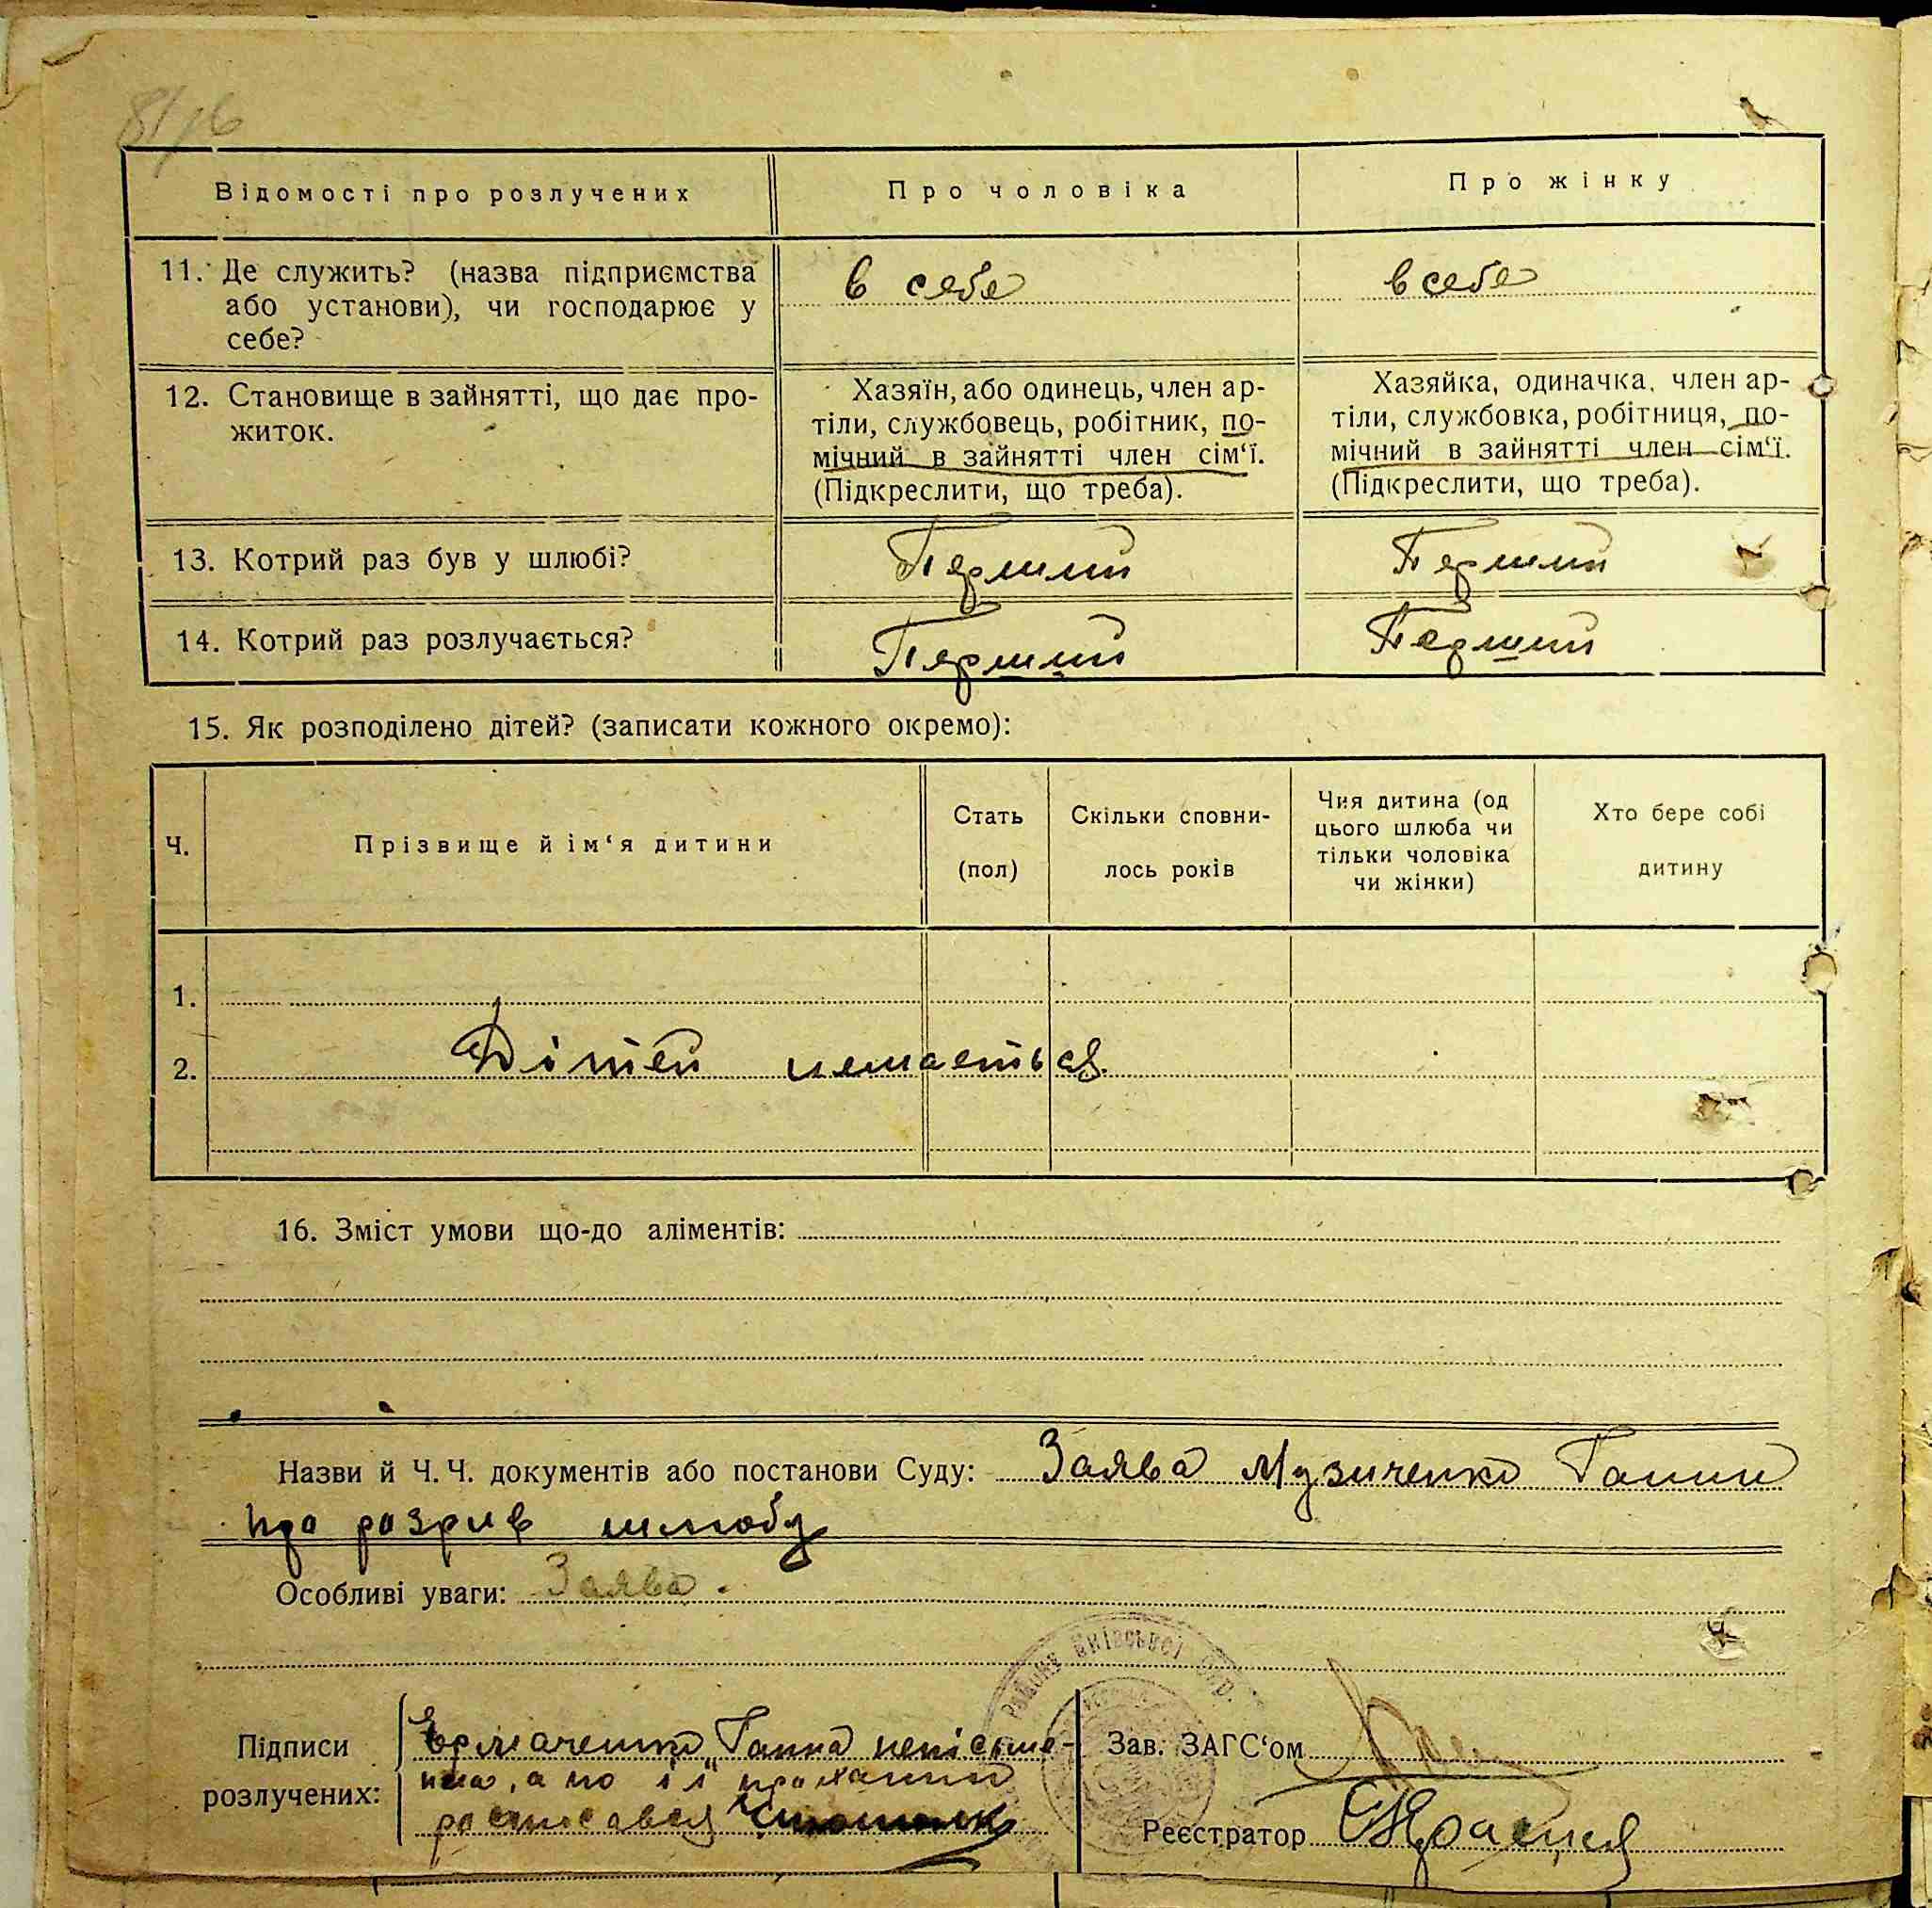 81/6
Відомості про розлучених
Про чоловіка
Про жінку
11. Де служить? (назва підприємства
або установи), чи господарює у
себе?
в себе
в себе
12. Становище в зайнятті, що дає про-
житок.
Хазяїн, або одинець, член ар-
тіли, службовець, робітник, по-
мічний в зайнятті член сім‘ї.
(Підкреслити, що треба).
Хазяйка, одиначка, член ар-
тіли, службовка, робітниця, по-
мічний в зайнятті член сім‘ї.
(Підкреслити, що треба).
13. Котрий раз був у шлюбі?
Перший
Перший
14. Котрий раз розлучається?
Перший
Перший
15. Як розподілено дітей? (записати кожного окремо):
Ч.
Прізвище й ім‘я дитини
Стать
(пол)
Скільки сповни-
лось років
Чия дитина (од
цього шлюба чи
тільки чоловіка
чи жінки)
Хто бере собі
дитину
1.
2.
Дітей немається.
16. Зміст умови що-до аліментів:
Назви й Ч. Ч. документів або постанови Суду: Заява Музиченко Ганни
про розрив шлюбу
Особливі уваги: Заява.
району Київської
Підписи
розлучених:
Ермаченко Ганна неписьме-
нна, а по її проханню
расписався
Зав. ЗАГС‘ом
Реєстратор